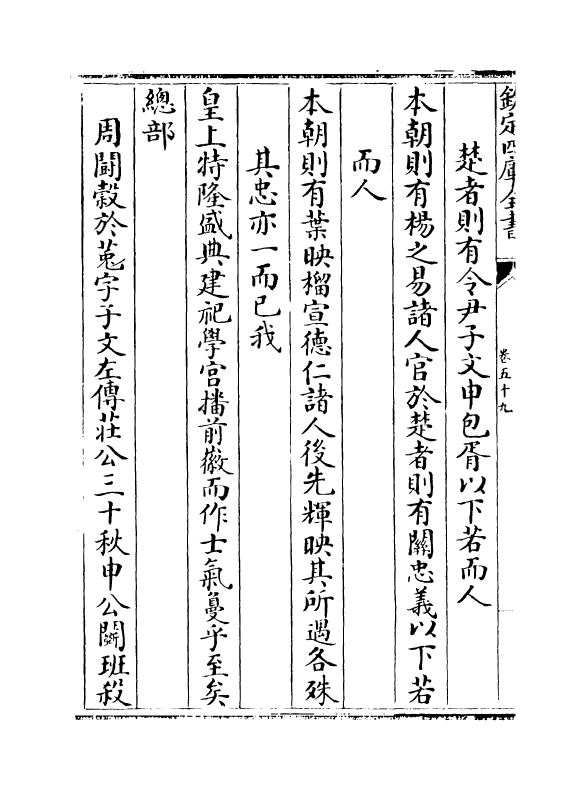 欽定四庫全書
卷五十九
楚者則有令尹子文申包胥以下若而人
本朝則有楊之易諸人官於楚者則有關忠義以下若
而人
本朝則有葉映榴宣德仁諸人後先輝映其所遇各殊
其忠亦一而已我
皇上特隆盛典建祀學宮播前徽而作士氣敻乎至矣
總部
周鬬穀於菟字子文左傳莊公三十秋申公鬬班殺